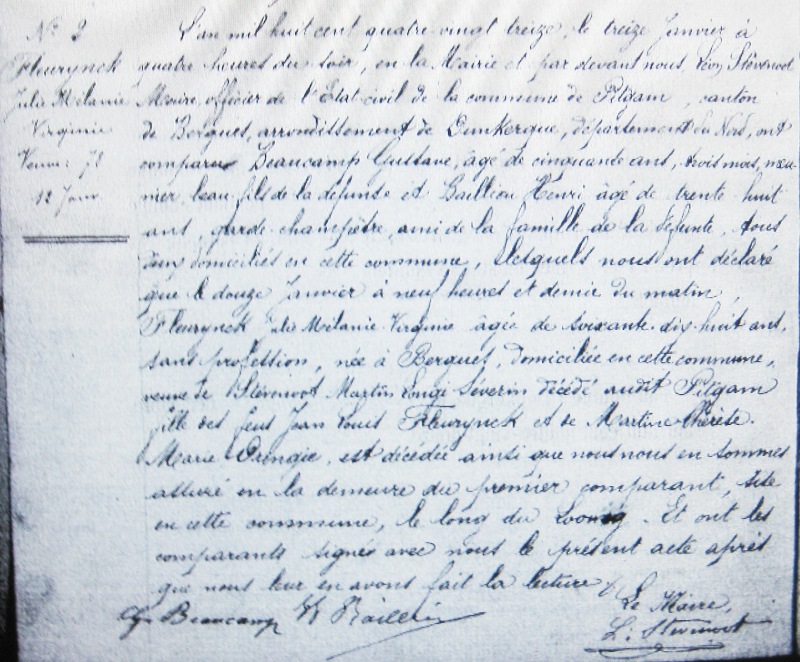 N° 2
Fleurynck
Julie Mélanie
Virginie
Veuve: 78
12 Janv.
L'an mil huit cent quatre-vingt treize, le treize Janvier à
quatre heures du soir, en la Mairie et par devant nous, Léon Stévenoot
Maire, officier de l'Etat-civil de la commune de Pitgam, canton
de Bergues, arrondissement de Dunkerque, département du Nord, ont
comparu Beaucamp Gustave, âgé de cinquante ans, trois mois, meu-
nier, beau-fils de la défunte et Baillieu Henri âgé de trente huit
ans, garde-champêtre, ami de la famille de la défunte, tous
deux domiciliés en cette commune, lesquels nous ont déclaré
que le douze Janvier à neuf heures et demie du matin,
Fleurynck Julie Mélanie Virginie âgée de soixante-dix-huit ans,
sans profession, née à Bergues, domiciliée en cette commune,
veuve de Stévenoot Martin Séverin décédé audit Pitgam
fille des feus Jean Louis Fleurynck et de Martine Thérèse
Marie, est décédée ainsi que nous nous en sommes
assuré en la demeure du premier comparant, sise
en cette commune, le long du. Et ont les
comparants signés avec nous le présent acte après
que nous leur en avons fait la lecture
Beaucamp H Baillieu
Le Maire,
L. Stévenoot